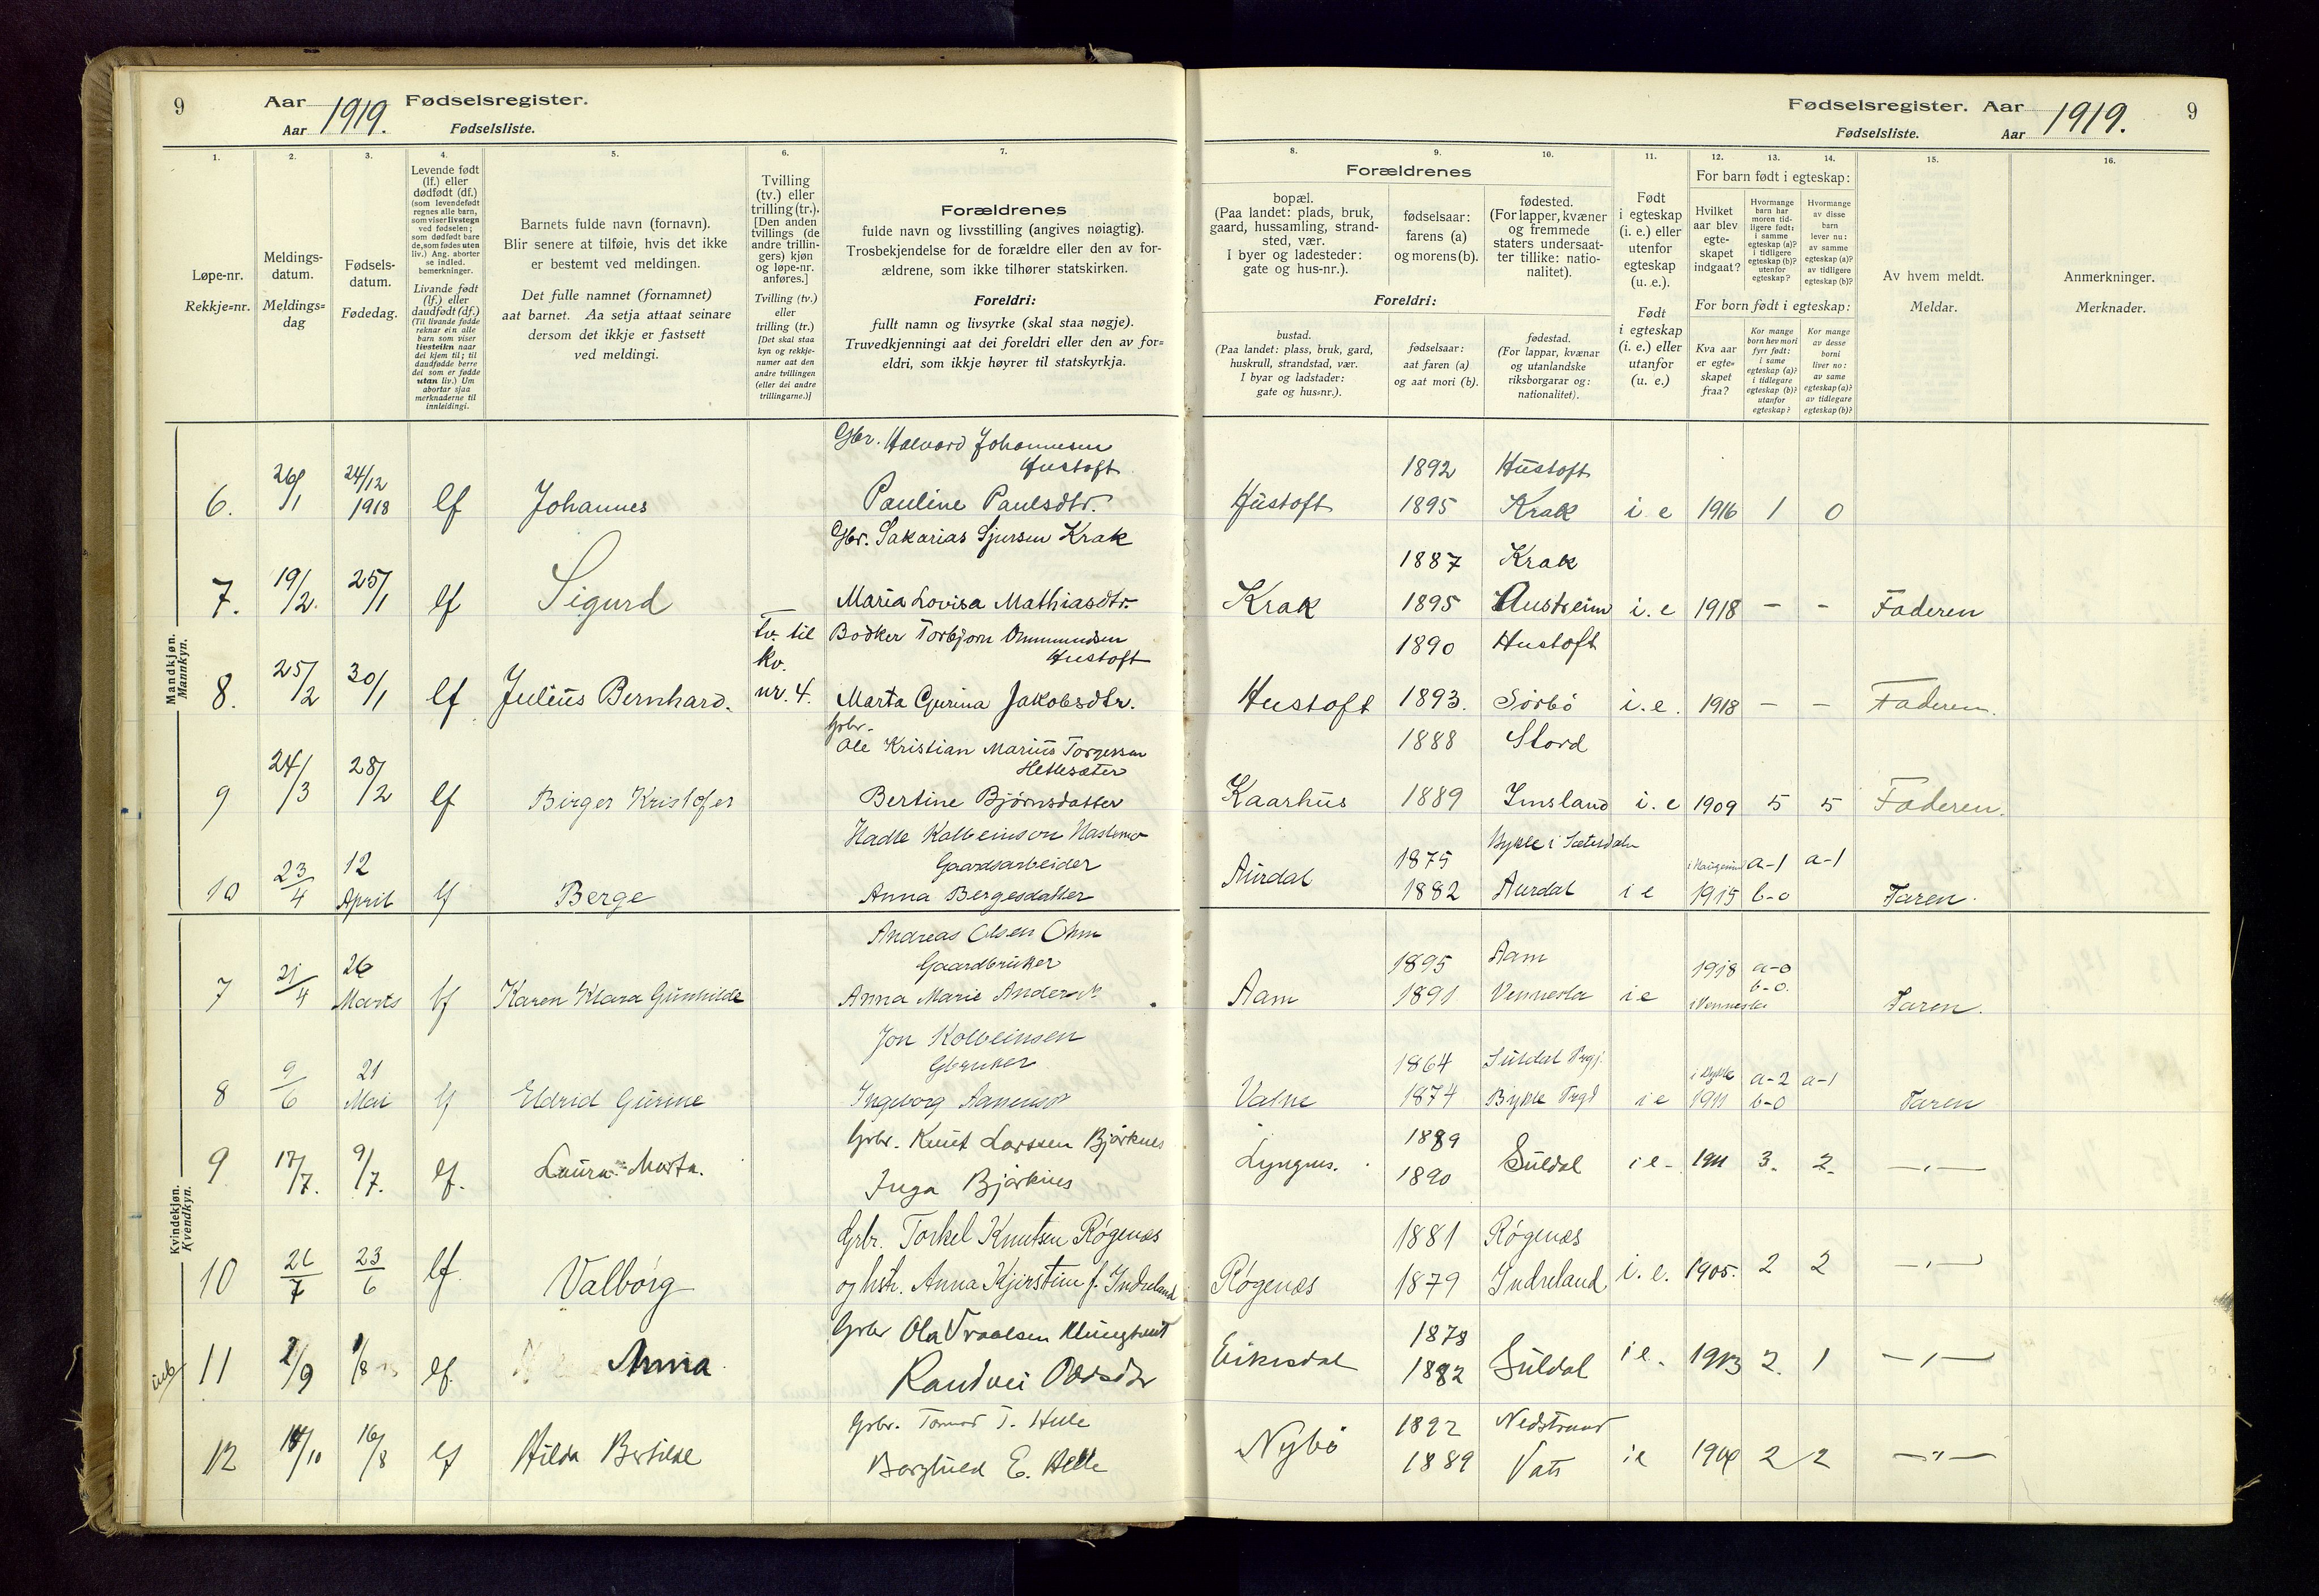 9
Aar 1919. Fødselsregister.
Aar Fødselsliste.
1.
2.
3.
4.
5.
6.
7.
Løpe-nr.
Rekkje=nr.
Meldings-
datum.
Meldings=
dag
Fødsels-
datum.
Fødedag.
Levende født
(lf.) eller
dødfødt (df.)
(som levendefødt
regnes alle barn,
som viser livstegn
ved fødselen;
som dødfødt bare
de, som fødes uten
liv.) Ang. aborter
se indled.
bemerkninger.
Livande født
(lf.) eller
daudfødt (df.)
(Til livande fødde
reknar ein alle
barn som viser
livsteikn naar
dei kjem til; til
daudfødde berre
dei som er fødde
utan liv.) Um
abortar sjaa
merknaderne til
innleidingi.
Barnets fulde navn (fornavn).
Blir senere at tilføie, hvis det ikke
er bestemt ved meldingen.
Det fulle namnet (fornamnet)
aat barnet. Aa setja attaat seinare
dersom det ikkje er fastsett
ved meldingi.
Tvilling
(tv.) eller
trilling (tr.).
[Den anden
tvillings (de
andre trillin-
gers) kjøn
og løpe-nr.
anføres.]
Tvilling (tv.)
eller
trilling (tr.)
[Det skal staa
kyn og rekkje-
numer aat den
andre tvillingen
(eller dei andre
trillingarne.)]
Forældrenes
fulde navn og livsstilling (angives nøiagtig).
Trosbekjendelse for de forældre eller den av for-
ældrene, som ikke tilhører statskirken.
Foreldri:
fullt namn og livsyrke (skal staa nøgje).
Truvedkjenningi aat dei foreldri eller den av for=
eldri, som ikkje høyrer til statskyrkja.
Mandkjøn.
Mannkyn.
Gbr. Halvard Johannesen
Hustoft
6. 26/1 24/12 1918 lf Johannes Pauline Paulsdtr.
Gbr. Sakarias Sjursen Krak
7. 19/2. 25/1 lf Sigurd Maria Lovisa Mathiasdtr.
Tv. til Bødker Torbjørn Ommundsen
kv. Hustoft
8. 25/2 30/1 lf Julius Bernhard. nr. 4. Marta Gurina Jakobsdtr.
Gbr.
Ole Kristian Marius Torgersen
9 24/3 28/2 lf Birger Kristofer Bertine Bjørnsdatter
Gaardsarbeider
10 23/4 12 April lf Berge Anna Bergesdatter
Kvindekjøn.
Kvendkyn.
Andreas Olsen
Gaardbruker
7 21/4 26 Marts lf Karen Klara Gunhilde Anna Marie
Jon Kolbeinsen
Gbruker
8 9/6 21 Mai lf Eldrid Gurine Ingeborg
Gbr. Knut Larssen Bjørknes
9 17/7. 9/7. lf. Laura Marta. Inga Bjørknes
Gbr. Torkel Knutsen Røgenæs
10 26/7 23/6 lf. Valborg og hstr. Anna Kjirstine f. Indreland
Gbr Ola
11 2/9 1/8 lf. Anna
Gbr. Tormod T.
12 14/10 16/8 lf Hilda Bertilde Borghild E.
Fødselsregister. Aar 1919. 9
Fødselsliste. Aar
8.
9.
10.
11.
12.
13.
14.
15.
16.
Forældrenes
bopæl.
(Paa landet: plads, bruk,
gaard, hussamling, strand-
sted, vær.
I byer og ladesteder:
gate og hus-nr.).
fødselsaar:
farens (a)
og morens (b).
fødested.
(For lapper, kvæner
og fremmede
staters undersaat-
ter tillike: natio-
nalitet).
Foreldri:
bustad.
(Paa landet: plass, bruk, gard,
huskrull, strandstad, vær.
I byar og ladstader:
gate og hus=nr.).
fødselsaar:
aat faren (a)
og aat mori (b).
fødestad.
(For lappar, kvænar
og utanlandske
riksborgarar og:
nationalitet).
Født
i egteskap
(i. e.) eller
utenfor
egteskap
(u. e.).
Født
i egteskap
(i. e.) eller
utanfor
(u. e.)
For barn født i egteskap:
Hvilket
aar blev
egte-
skapet
indgaat?
Hvormange
barn har
moren tid-
ligere født:
i samme
egteskap (a)?
i tidligere
egteskap (b)?
utenfor
egteskap?
Hvormange
av disse
barn
lever nu:
av samme
egteskap (a)?
av tidligere
egteskap (b)?
For born født i egteskap:
Kva aar
er egte-
skapet
fraa?
Kor mange
born hev mori
fyrr født:
i same
egteskap (a)?
i tidlegare
egteskap (b)?
utanfor
egteskap?
Kor mange
av desse
borni
liver no:
av same
egteskap (a)?
av tidlegare
egteskap (b)?
Av hvem meldt.
Meldar.
Anmerkninger.
Merknader.
1892 Hustoft
Hustoft 1895 Krak i. e 1916 1 0
1887 Krak
Krak 1895 Austreim i. e 1918 – – Faderen
1890 Hustoft
Hustoft 1893. Sörbö i. e. 1918 – – Faderen.
1888 Stord
Kaarhus 1889 Imsland i. e 1909 5 5 Faderen.
1875 Bykle i Sætesdalen i Haugesund a-1 a-1
Aurdal 1882 Aurdal i e 1915 b-0 Faren.
1895 Aam 1918 a-0
b-0.
Aam 1891 Vennesla i e i Vennesla Faren.
1864 Suldal Prgj. i Bykle a-2 a-1
1874 Bykle Prgj i e 1911 b-0 Faren
1889
Lyngnes. 1890 Suldal i e- 1911 3. 2. –„–
1881 Røgenæs
Røgenæs 1879 Indreland i. e. 1905. 2 2 –„–
1878
Eiksdal 1882 Suldal i e. 1913 2. 1 –„–
1892 Nedstrand
Nybö 1889 Vats i e 2 2 –„–